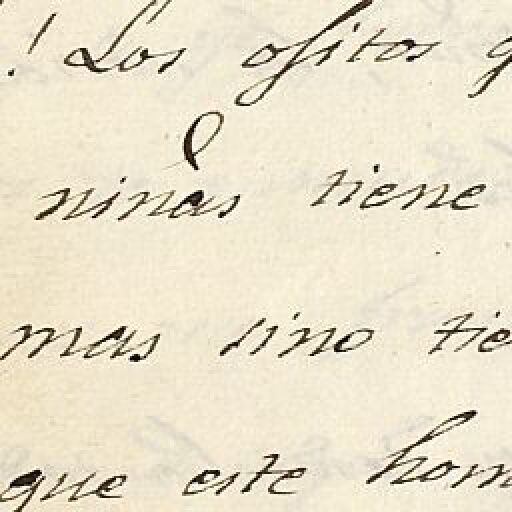 ! Los ositos q
niñas tiene
mas sino tie
que este hom